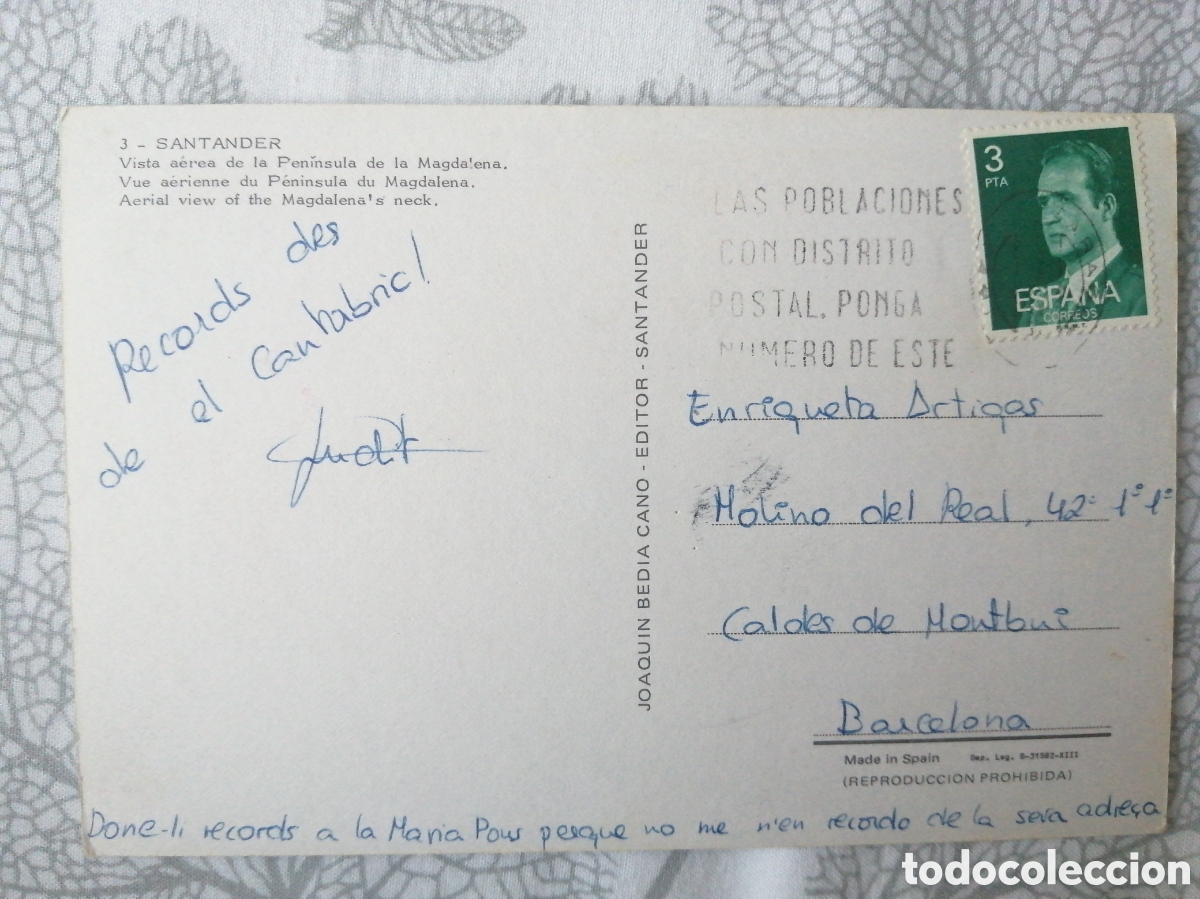 3 - SANTANDER
Vista aérea de la Península de la Magdalena.
Vue aérienne du Péninsula du Magdalena.
Aerial view of the Magdalena's neck.
Records des
de el Cantabric!
Judit
JOAQUIN BEDIA CANO - EDITOR - SANTANDER
LAS POBLACIONES
CON DISTRITO
POSTAL, PONGA
NUMERO DE ESTE
3
PTA
ESPAÑA
CORREOS
Enriqueta Artigas
Molino del Real, 42º 1º 1ª
Caldes de Montbui
Barcelona
Made in Spain Dep. Leg. B-31562-XIII
(REPRODUCCION PROHIBIDA)
Done-li records a la Maria Pous perque no me n'en recordo de la seva adreça
todocoleccion